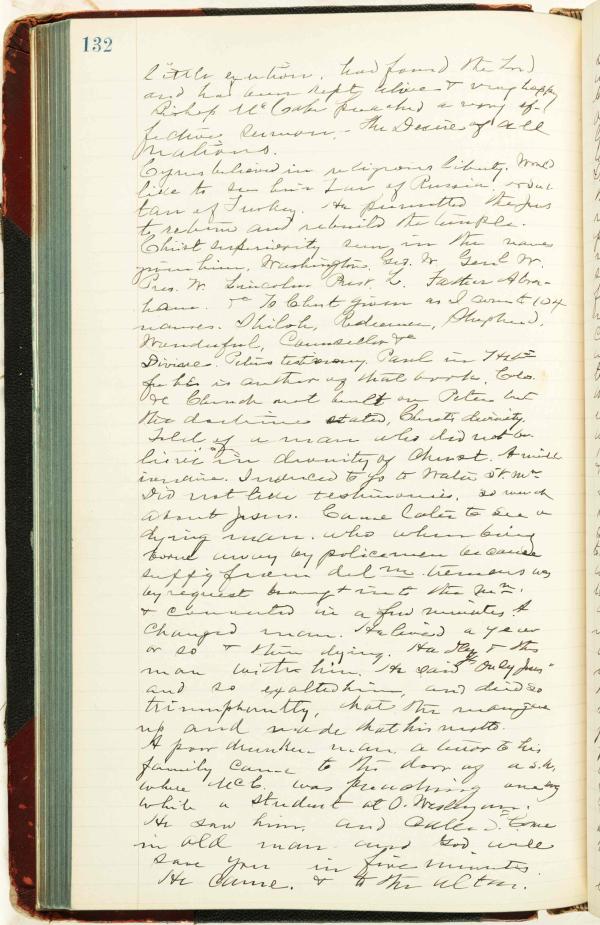 132
little exertion, had found the Lord
and had been kept alive & very happy
Bishop McCabe preached a very ef-
fective sermon. - The Desire of all
Nations.
Cyrus believed in religious liberty. Would
like to see him Tzar of Russia, or Sul
tan of Turkey. He permitted the Jews
to return and rebuild the temple.
Christ superiority seen in the names
given him. Washington, Geo. W. Genl W.
Pres. W. Lincoln Prest. L. Father Abra-
ham. &c To Christ given as I count 104
names. Shiloh, Redeemer, Shepherd,
Wonderful, Counsellor &c
Divine. Peters testimony. Paul in Heb
for he is author of that book, Colo.
&c Church not built on Peter but
the doctrine stated, Christs divinity.
Told of a man who did not be-
lieve in divinity of Christ. A
Induced to go to Water St. Mn
Did not like testimonies, so much
about Jesus. Came later to see a
dying man. who when being
borne away by policemen because
suffg from delm. tremens was
by request brought into the Mn.
& converted in a few minutes. A
changed man. He lived a year
or so & then dying. Had this
man with him. He said "Only Jesus"
and so exalted him, and died so
triumphantly, that the man gave
up and made that his motto.
A poor drunken man, a terror to his
family came to the door of a S.H.
where McC. was preaching one evg
while a student at O. Wesleyan.
He saw him, and called, "Come
in old man and God will
save you in five minutes.
He came. & to the altar.